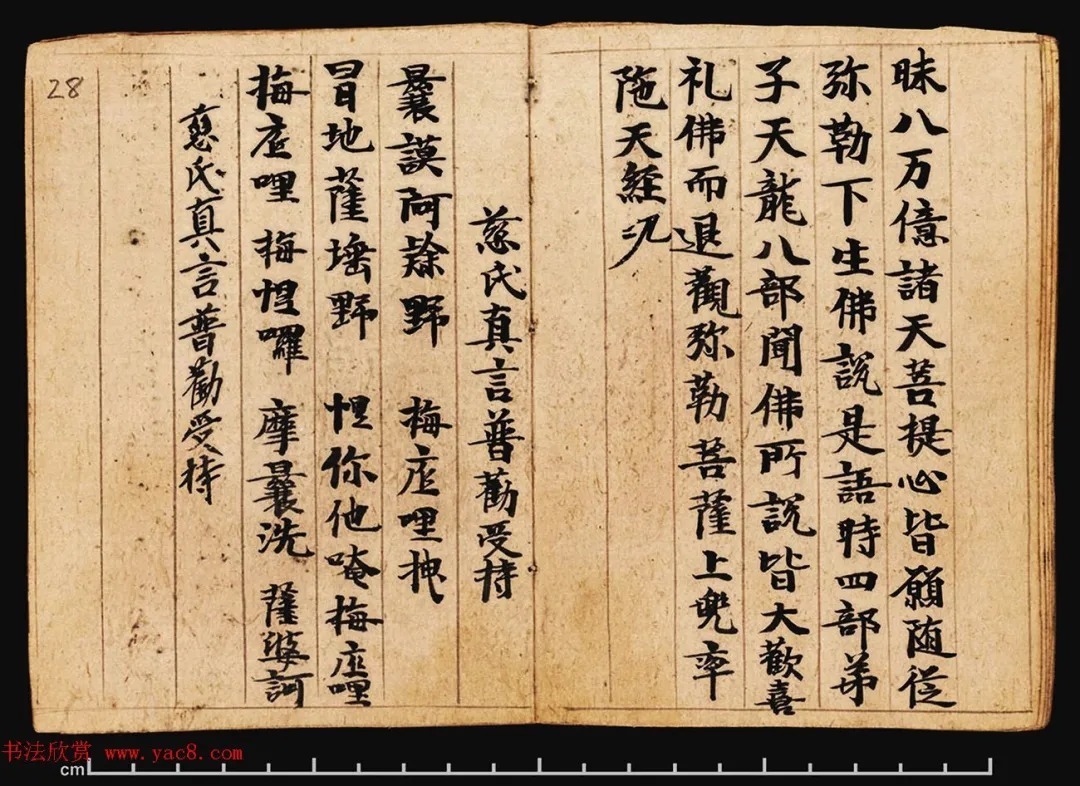 昧八万億諸天菩提心皆願随從
弥勒下生佛說是語時四部弟
子天龍八部聞佛所說皆大歡喜
礼佛而退觀弥勒菩薩上兜率
陁天經
慈氏真言普勸受持
曩謨阿野 梅底哩拽
冐地薩埵野 怛你他唵梅底哩
梅底哩 梅怛囉 摩曩洗 薩婆訶
慈氏真言普勸受持
28
书法欣赏 www.yac8.com
cm